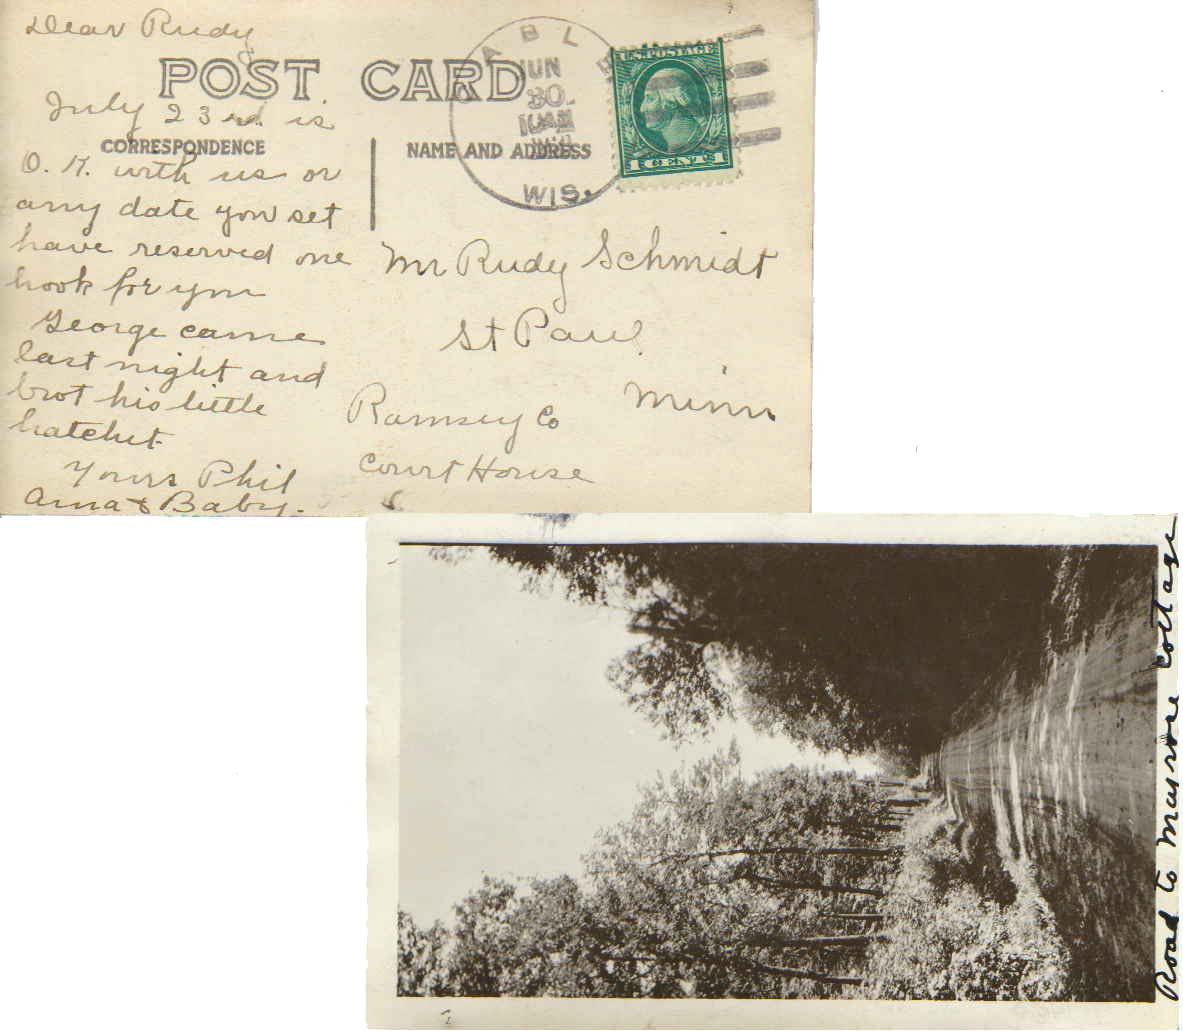 Dear Rudy
POST CARD
July 23rd. is
CORRESPONDENCE
O. K. with us or
any date you set
have reserved one
hook for you
George came
last night and
brot his little
hatchet.
Yours Phil
Anna & Baby.
NAME AND ADDRESS
CABLE
JUN
30
10AM
WIS.
U.S. POSTAGE
1 CENT 1
Mr Rudy Schmidt
St Paul
Minn
Ramsey Co
Court House
Road to Mayrose Cottage